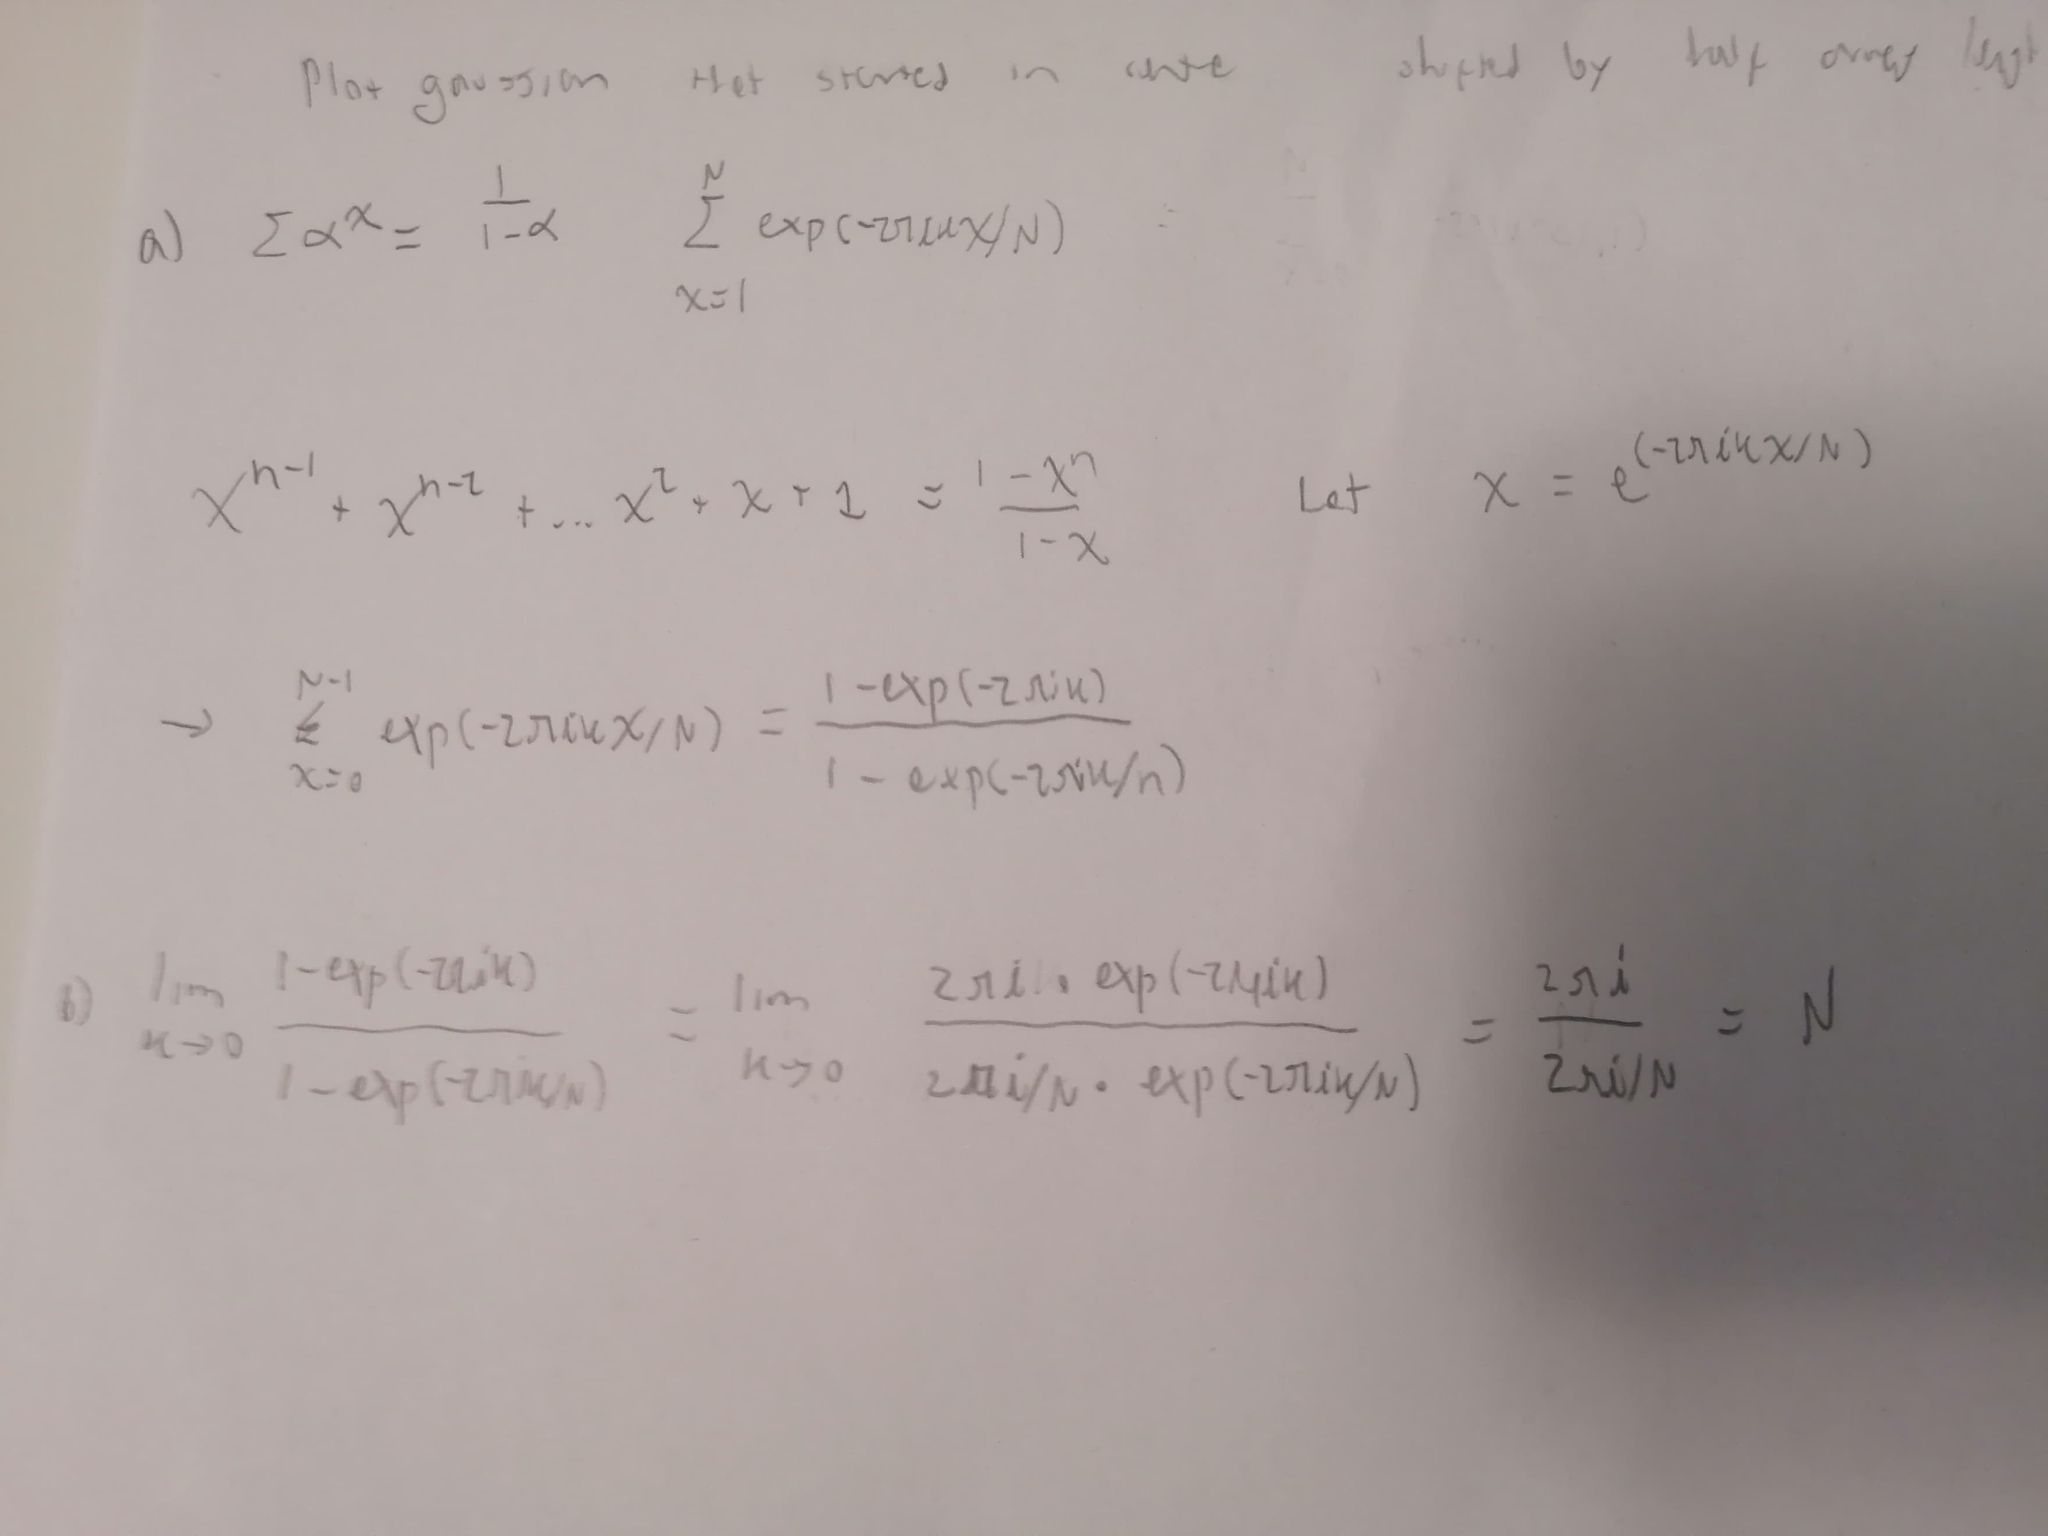 Plot gaussian that started in centre shifted by half array lengt
a) Σ α^x = 1/(1-α) Σ_{x=1}^{N} exp(-2πikx/N)
x^{n-1} + x^{n-2} + ... x^2 + x + 1 = (1-x^n)/(1-x) Let x = e^{(-2πikx/N)}
→ Σ_{x=0}^{N-1} exp(-2πikx/N) = (1-exp(-2πik))/(1-exp(-2πik/n))
b) lim_{k→0} (1-exp(-2πik))/(1-exp(-2πik/N)) = lim_{k→0} (2πi · exp(-2πik))/(2πi/N · exp(-2πik/N)) = 2πi/(2πi/N) = N